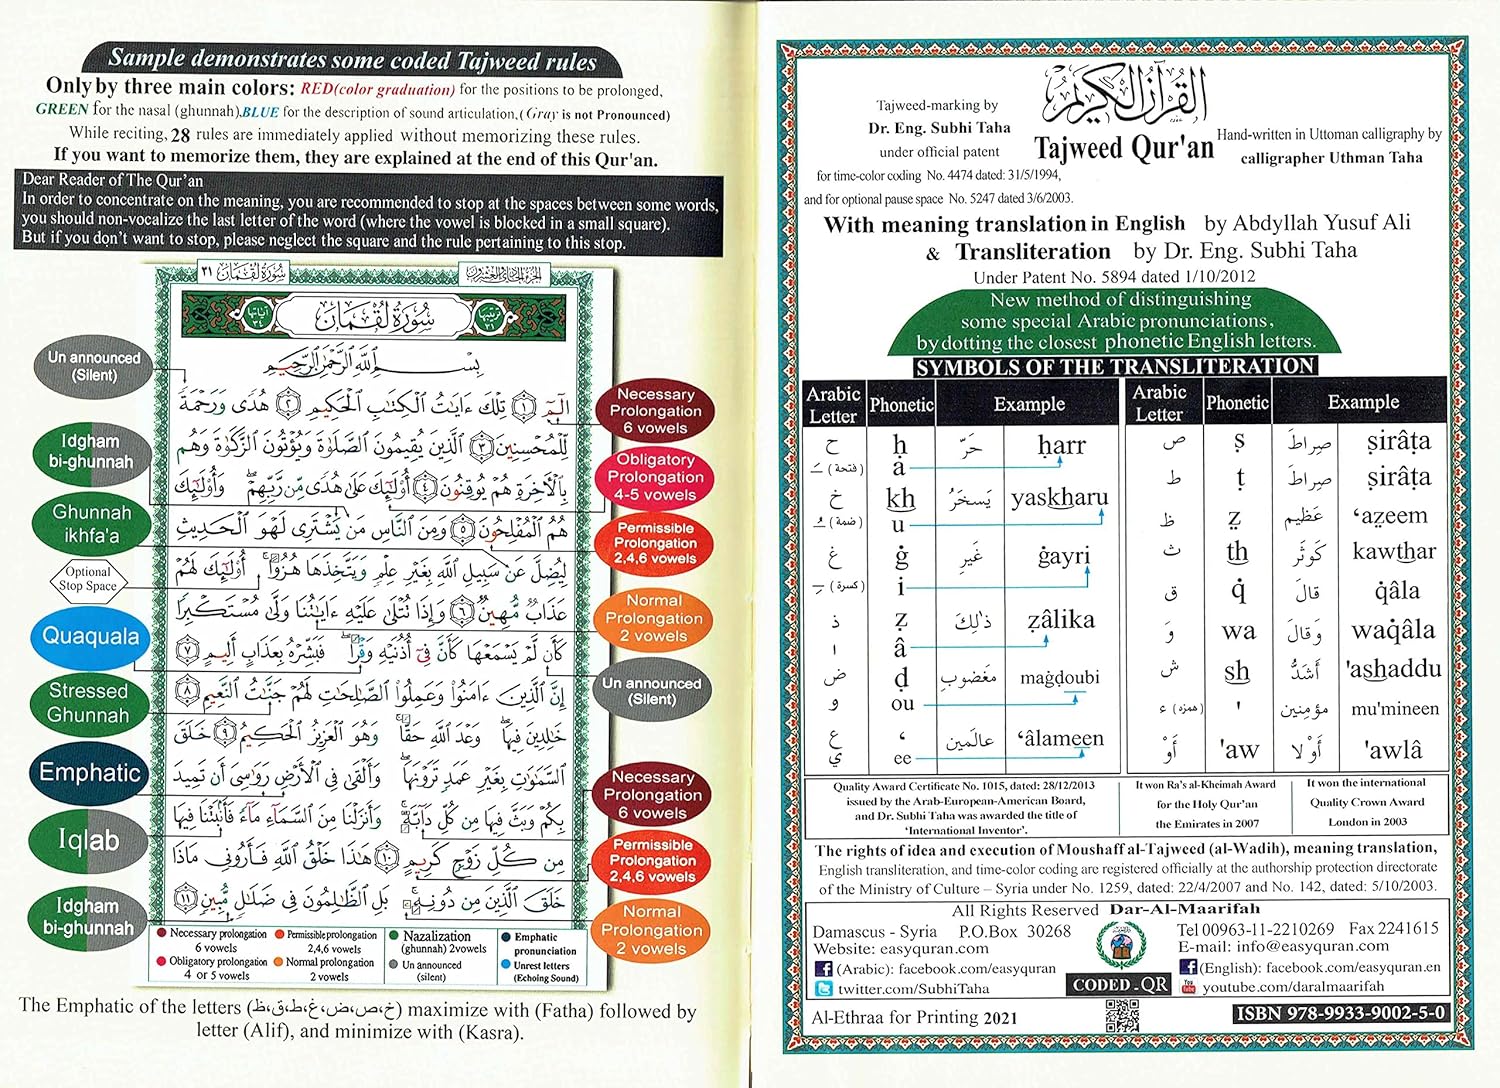 Sample demonstrates some coded Tajweed rules
Only by three main colors: RED(color graduation) for the positions to be prolonged,
GREEN for the nasal (ghunnah),BLUE for the description of sound articulation,( Gray is not Pronounced)
While reciting, 28 rules are immediately applied without memorizing these rules.
If you want to memorize them, they are explained at the end of this Qur'an.
Dear Reader of The Qur'an
In order to concentrate on the meaning, you are recommended to stop at the spaces between some words,
you should non-vocalize the last letter of the word (where the vowel is blocked in a small square).
But if you don't want to stop, please neglect the square and the rule pertaining to this stop.
سُورَةُ لُقْمَان ٣١
الجزء الحادي والعشرون
آياتها ٣٤
سُورَةُ لُقْمَان
ترتيبها ٣١
بِسْمِ اللَّهِ الرَّحْمَٰنِ الرَّحِيمِ
الٓمٓ ١ تِلْكَ ءَايَٰتُ ٱلْكِتَٰبِ ٱلْحَكِيمِ ٢ هُدًى وَرَحْمَةً
لِّلْمُحْسِنِينَ ٣ ٱلَّذِينَ يُقِيمُونَ ٱلصَّلَوٰةَ وَيُؤْتُونَ ٱلزَّكَوٰةَ وَهُم
بِٱلْءَاخِرَةِ هُمْ يُوقِنُونَ ٤ أُو۟لَٰٓئِكَ عَلَىٰ هُدًى مِّن رَّبِّهِمْ وَأُو۟لَٰٓئِكَ
هُمُ ٱلْمُفْلِحُونَ ٥ وَمِنَ ٱلنَّاسِ مَن يَشْتَرِى لَهْوَ ٱلْحَدِيثِ
لِيُضِلَّ عَن سَبِيلِ ٱللَّهِ بِغَيْرِ عِلْمٍ وَيَتَّخِذَهَا هُزُوًا أُو۟لَٰٓئِكَ لَهُمْ
عَذَابٌ مُّهِينٌ ٦ وَإِذَا تُتْلَىٰ عَلَيْهِ ءَايَٰتُنَا وَلَّىٰ مُسْتَكْبِرًا
كَأَن لَّمْ يَسْمَعْهَا كَأَنَّ فِىٓ أُذُنَيْهِ وَقْرًا فَبَشِّرْهُ بِعَذَابٍ أَلِيمٍ ٧
إِنَّ ٱلَّذِينَ ءَامَنُوا۟ وَعَمِلُوا۟ ٱلصَّٰلِحَٰتِ لَهُمْ جَنَّٰتُ ٱلنَّعِيمِ ٨
خَٰلِدِينَ فِيهَا وَعْدَ ٱللَّهِ حَقًّا وَهُوَ ٱلْعَزِيزُ ٱلْحَكِيمُ ٩ خَلَقَ
ٱلسَّمَٰوَٰتِ بِغَيْرِ عَمَدٍ تَرَوْنَهَا وَأَلْقَىٰ فِى ٱلْأَرْضِ رَوَٰسِىَ أَن تَمِيدَ
بِكُمْ وَبَثَّ فِيهَا مِن كُلِّ دَآبَّةٍ وَأَنزَلْنَا مِنَ ٱلسَّمَآءِ مَآءً فَأَنۢبَتْنَا فِيهَا
مِن كُلِّ زَوْجٍ كَرِيمٍ ١٠ هَٰذَا خَلْقُ ٱللَّهِ فَأَرُونِى مَاذَا
خَلَقَ ٱلَّذِينَ مِن دُونِهِ بَلِ ٱلظَّٰلِمُونَ فِى ضَلَٰلٍ مُّبِينٍ ١١
Un announced
(Silent)
Idgham
bi-ghunnah
Ghunnah
ikhfa'a
Optional
Stop Space
Quaquala
Stressed
Ghunnah
Emphatic
Iqlab
Idgham
bi-ghunnah
Necessary
Prolongation
6 vowels
Obligatory
Prolongation
4-5 vowels
Permissible
Prolongation
2,4,6 vowels
Normal
Prolongation
2 vowels
Un announced
(Silent)
Necessary
Prolongation
6 vowels
Permissible
Prolongation
2,4,6 vowels
Normal
Prolongation
2 vowels
Necessary prolongation Permissible prolongation Nazalization Emphatic
6 vowels 2,4,6 vowels (ghunnah) 2vowels pronunciation
Obligatory prolongation Normal prolongation Un announced Unrest letters
4 or 5 vowels 2 vowels (silent) (Echoing Sound)
The Emphatic of the letters (خ،ص،ض،غ،ط،ق،ظ) maximize with (Fatha) followed by
letter (Alif), and minimize with (Kasra).
القرآن الكريم
Tajweed Qur'an
Tajweed-marking by
Dr. Eng. Subhi Taha
under official patent
for time-color coding No. 4474 dated: 31/5/1994,
and for optional pause space No. 5247 dated 3/6/2003.
Hand-written in Uttoman calligraphy by
calligrapher Uthman Taha
With meaning translation in English by Abdyllah Yusuf Ali
& Transliteration by Dr. Eng. Subhi Taha
Under Patent No. 5894 dated 1/10/2012
New method of distinguishing
some special Arabic pronunciations,
by dotting the closest phonetic English letters.
SYMBOLS OF THE TRANSLITERATION
Arabic Letter Phonetic Example Arabic Letter Phonetic Example
ح ḥ حَرّ ḥarr ص ṣ صِراطَ ṣirâṭa
(فتحة) a ط ṭ صِراطَ ṣirâṭa
خ kh يَسخَرُ yaskharu ظ ẓ عَظِيم ‘aẓeem
(ضمة) u ث th كَوثَر kawthar
غ ġ غَيرِ ġayri ق q̇ قالَ q̇âla
(كسرة) i وَ wa وَقالَ waq̇âla
ذ ẓ ذٰلِكَ ẓâlika ش sh أَشَدُّ 'ashaddu
ا â ء (همزه) ' مؤمنين mu'mineen
ض ḍ مَغضوبِ maġḍoubi أَوْ 'aw أَوْلا 'awlâ
و ou
ع ‘ عالَمين ‘âlameen
ي ee
Quality Award Certificate No. 1015, dated: 28/12/2013
issued by the Arab-European-American Board,
and Dr. Subhi Taha was awarded the title of
‘International Inventor’.
It won Ra's al-Kheimah Award
for the Holy Qur'an
the Emirates in 2007
It won the international
Quality Crown Award
London in 2003
The rights of idea and execution of Moushaff al-Tajweed (al-Wadih), meaning translation,
English transliteration, and time-color coding are registered officially at the authorship protection directorate
of the Ministry of Culture – Syria under No. 1259, dated: 22/4/2007 and No. 142, dated: 5/10/2003.
All Rights Reserved Dar-Al-Maarifah
Damascus - Syria P.O.Box 30268
Website: easyquran.com
(Arabic): facebook.com/easyquran
twitter.com/SubhiTaha
Tel 00963-11-2210269 Fax 2241615
E-mail: info@easyquran.com
(English): facebook.com/easyquran.en
youtube.com/daralmaarifah
CODED - QR
Al-Ethraa for Printing 2021
ISBN 978-9933-9002-5-0